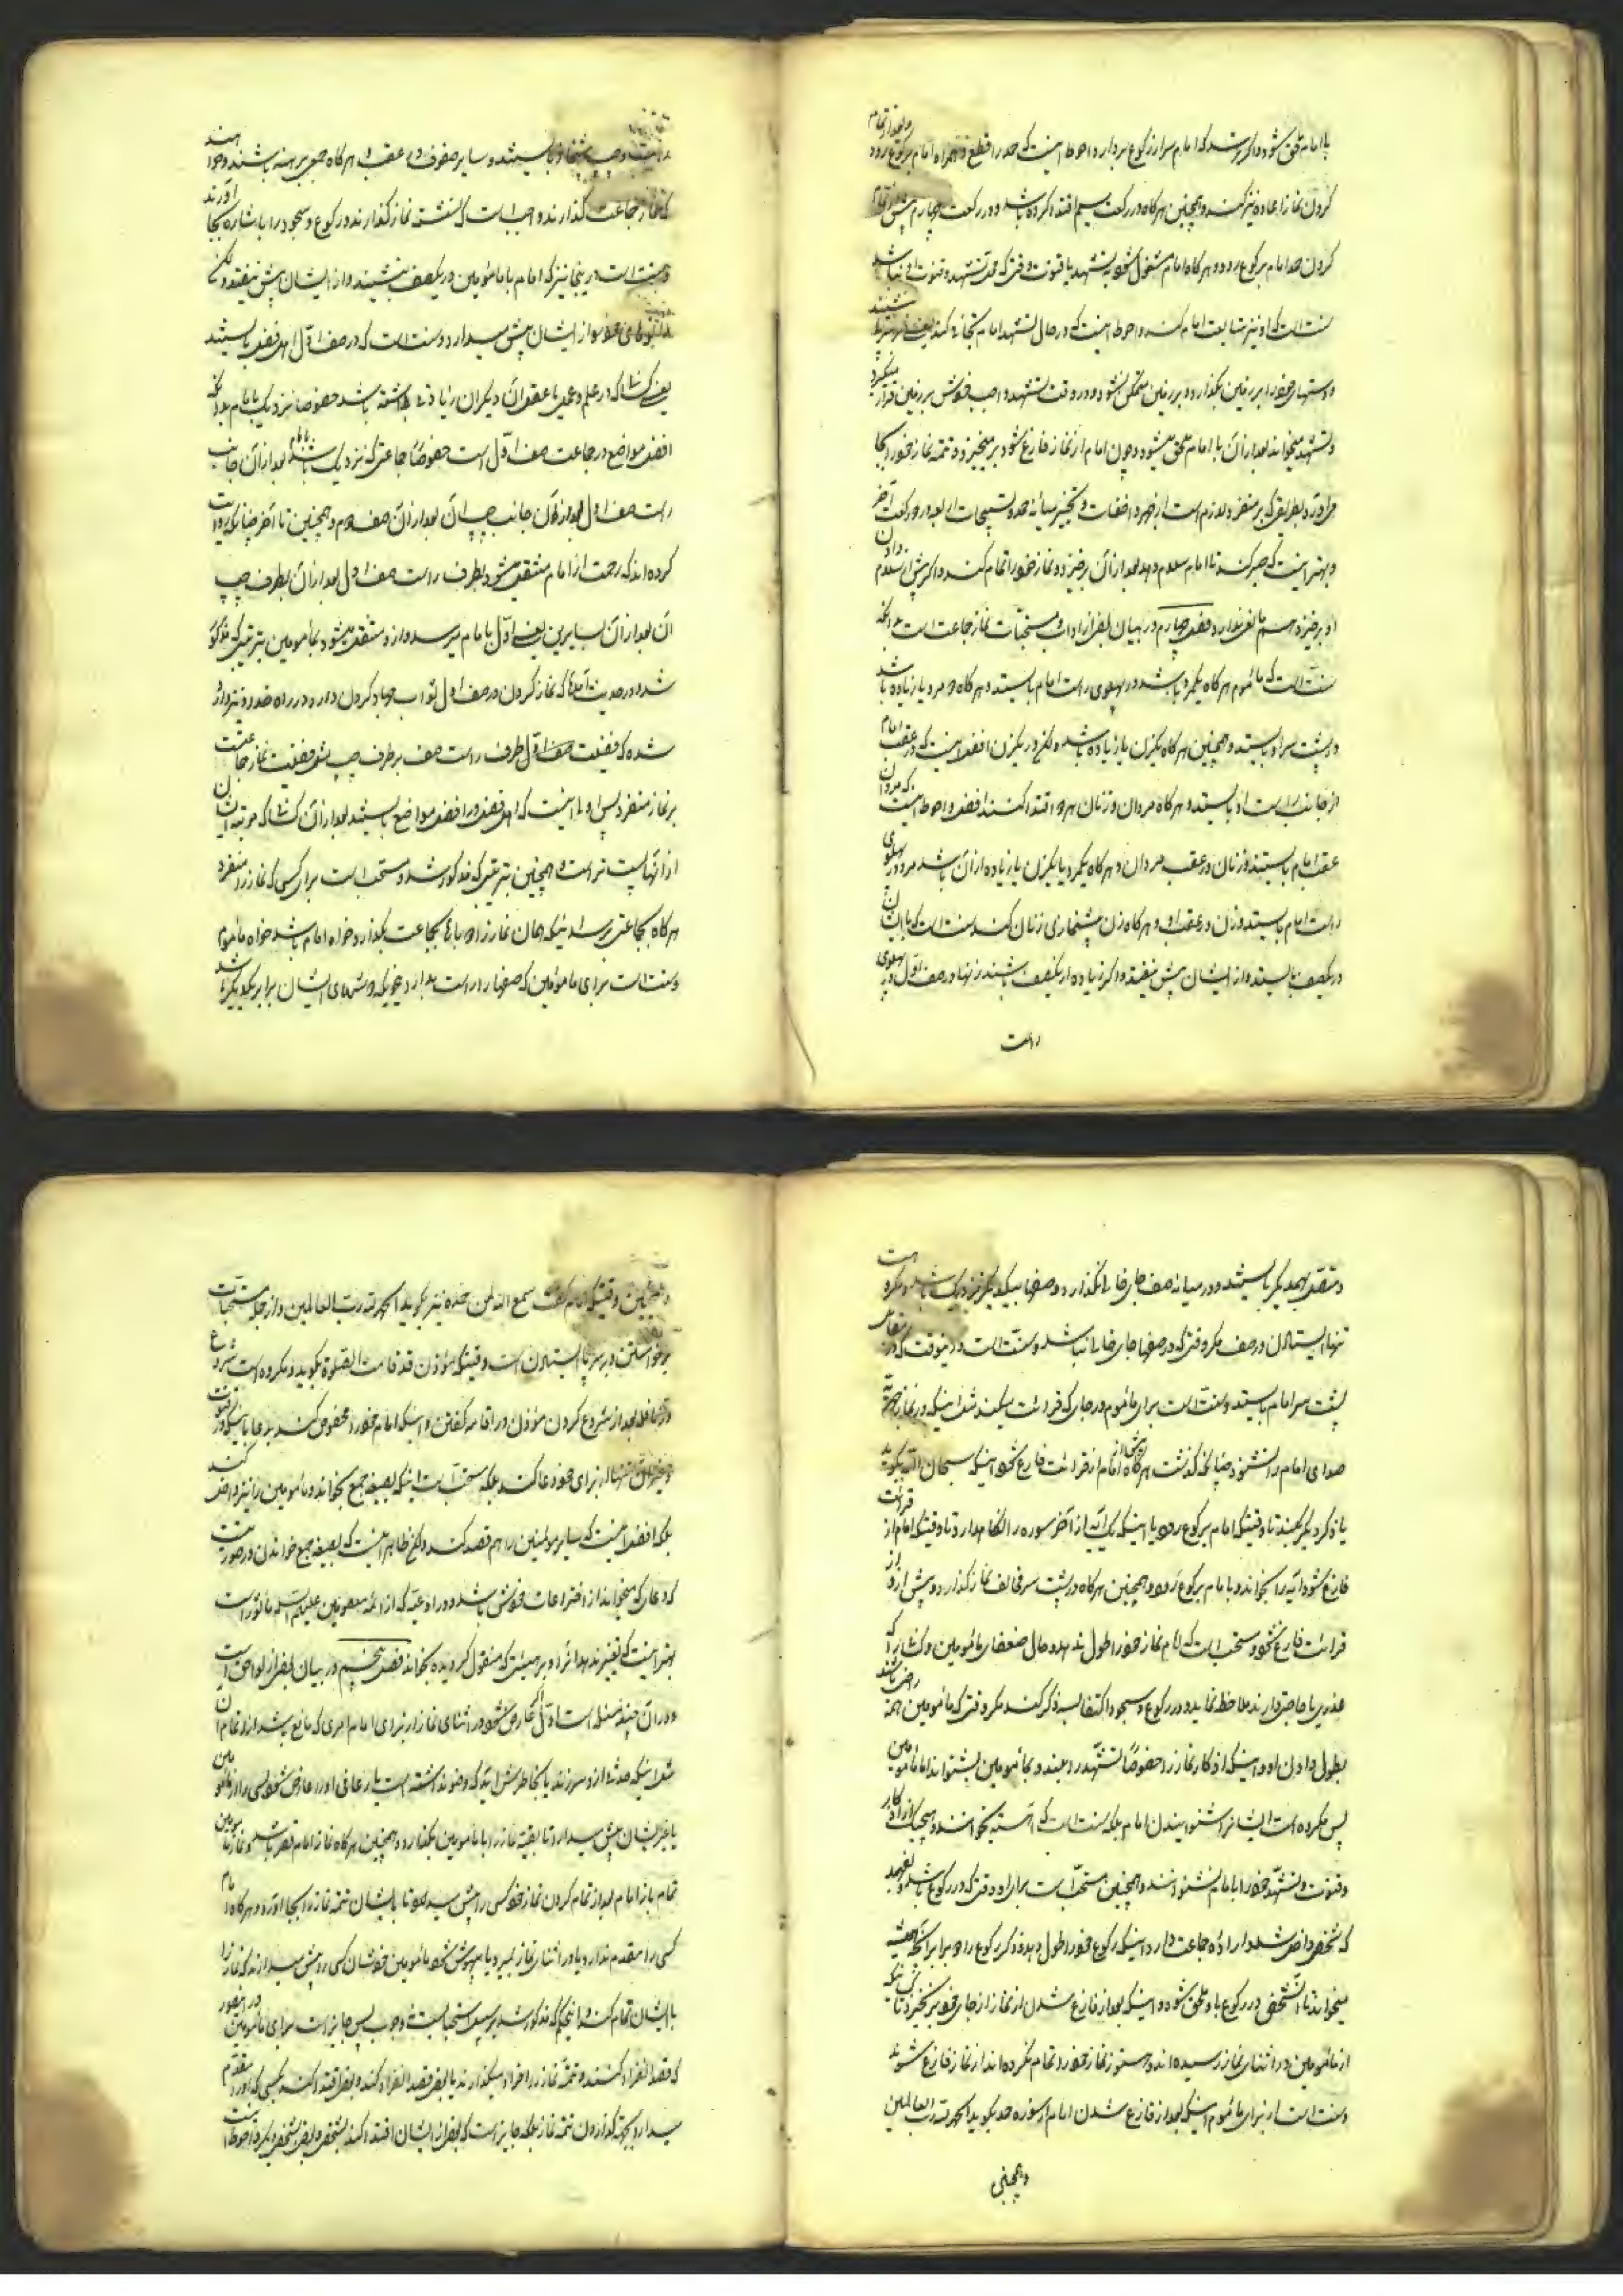 با امام ملحق شود و اگر ترسد که امام سر از رکوع بردارد احوط اینست که حمد را قطع و همراه امام برکوع رود و بعد از تمام
کردن نماز اعاده نیز کند و همچنین هرگاه در رکعت سیم اقتدا کرده باشد و در رکعت چهارم پیش از تمام
کردن حمد امام برکوع رود و هرگاه امام مشغول شود بتشهد یا قنوت وقتی که محل تشهد و قنوت او نباشد
سنت است که او نیز متابعت امام کند و احوط اینست که در حال تشهد امام تجافی کند یعنی
و دستهای خود را بر زمین بگذارد و بر زمین متمکن نشود و در وقت تشهد واجب خودش بر زمین قرار میگیرد
و تشهد میخواند بعد از آن با امام ملحق میشود و چون امام از نماز فارغ شود بر میخیزد و تتمه نماز خود را بجا
می آورد بطریقی که بر منفرد لازم است از جهر و اخفات و تخییر میانه حمد و تسبیحات اربعه در دو رکعت آخر
و بهتر اینست که صبر کند تا امام سلام دهد بعد از آن برخیزد و نماز خود را تمام کند و اگر پیش از سلام دادن
او برخیزد هم مانعی ندارد فصل چهارم در بیان بعضی از آداب و مستحبات نماز جماعت است بدانکه
سنت است که مأموم هرگاه یکمرد باشد در پهلوی راست امام بایستد و هرگاه دو مرد یا زیاده باشد
در پشت سر او بایستد و همچنین هرگاه یکزن یا زیاده باشد ولیکن در یکزن افضل اینست که در عقب امام
از جانب راست او بایستد و هرگاه مردان و زنان هر دو اقتدا کنند افضل و احوط اینست که مردان
عقب امام بایستند و زنان در عقب مردان و هرگاه یکمرد یا یکزن یا زیاده از آن باشد مرد در پهلوی
راست امام بایستد و زن در عقب او و هرگاه زن پیشنمازی زنان کند سنت است که با ایشان
در یکصف بایستد و از ایشان پیش نیفتد و اگر زیاده از یکصف باشند زنها در صف اول در پهلوی
راست
و چپ پیشنماز بایستند و سایر صفوف در عقب و هرگاه جمعی برهنه باشند و خواهند
که نماز جماعت گذارند واجب است که نشسته نماز گذارند و رکوع و سجود را باشاره بجا آورند
و سنت است در اینجا نیز که امام با مأمومین در یکصف بنشیند و از ایشان پیش نیفتد ولیکن
زانوهای خود را از ایشان پیش میدارد و سنت است که در صف اول اهل فضل بایستند
یعنی کسانی که در علم و عمل یا عقل از دیگران زیادتی داشته باشند خصوصا نزدیک بامام بدانکه
افضل مواضع در جماعت صف اول است خصوصا جاعتی که نزدیک باشند بامام بعد از آن جانب
راست صف اول بعد از آن جانب چپ آن بعد از آن صف دوم و همچنین تا آخر چنانکه روایت
کرده اند که رحمت از امام منتقل میشود بطرف راست صف اول بعد از آن بطرف چپ
آن بعد از آن بسایرین یعنی اول بامام میرسد و از او منتقل میشود بمأمومین بترتیبی که مذکور
شد و در حدیث آمده که نماز کردن در صف اول ثواب جهاد کردن دارد در راه خدا و نیز وارد
شده که فضیلت صف اول طرف راست صف بر طرف چپ مثل فضیلت نماز جماعت است
بر نماز منفرد پس اولی اینست که اهل فضل در افضل مواضع بایستند بعد از آن کسانی که مرتبه ایشان
از آنها پست تر است و همچنین بترتیبی که مذکور شد و مستحب است برای کسی که نماز را منفرد
هرگاه بجماعتی برسد اینکه همان نماز را دوباره بجماعت بگذارد خواه امام باشد خواه مأموم
و سنت است برای مأمومین که صفها را راست بدارند بنحویکه دوشهای ایشان برابر یکدیگر باشد
و متصل بهمدیگر بایستند و در میانه صف جای خالی نگذارند و صفها بیکدیگر نزدیک باشد و مکروه است
تنها ایستادن در صف مگر وقتی که در صفها جای خالی نباشد و سنت است در اینوقت که در مقابل
پشت سر امام بایستد و سنت است برای مأموم در جای که قرائت میکند مثل اینکه در نماز جهریه
صدای امام را نشنود چنانکه گذشت هرگاه پیش از امام از قرائت فارغ شود اینکه سبحان الله بگوید
یا ذکر دیگر بکند تا وقتیکه امام برکوع رود یا اینکه یک آیه از آخر سوره را نگاهدارد تا وقتیکه امام از قرائت
فارغ شود آیه را بخواند و با امام برکوع رود و همچنین هرگاه در پشت سر مخالف نماز گذارد و پیش از او از
قرائت فارغ شود و مستحب است که امام نماز خود را طول ندهد و حال ضعفای مأمومین و کسانی را که
عذری یا حاجتی دارند ملاحظه نماید و در رکوع و سجود اکتفا بسه ذکر کند مگر وقتی که مأمومین همه راضی باشند
بطول دادن او و اینکه اذکار نماز را خصوصا تشهد را بلند و بمأمومین بشنواند اما مأمومین
پس مکروه است ایشانرا شنوانیدن امام بلکه سنت است که آهسته بخوانند و هیچیک از اذکار
و قنوت و تشهد خود را بامام نشنوانند و همچنین مستحب است برای او وقتی که در رکوع باشد و بفهمد
که شخصی داخل شد و اراده جماعت دارد اینکه رکوع خود را طول بدهد و ذکر رکوع را دو برابر آنچه همیشه
میخواند تا آنشخص در رکوع باو ملحق شود و اینکه بعد از فارغ شدن از نماز از جای خود بر نخیزد تا آنکه
از مأمومین در اثنای نماز رسیده اند و هنوز نماز خود را تمام نکرده اند از نماز فارغ شوند
و سنت است از برای مأموم اینکه بعد از فارغ شدن امام از سوره حمد بگوید الحمد لله رب العالمین
و همچنین
و همچنین وقتیکه امام گفت سمع الله لمن حمده نیز بگوید الحمد لله رب العالمین و از جمله مستحبات
برخواستن و بر سر پا ایستادن است وقتیکه مؤذن قد قامت الصلوة بگوید و مکروه است شروع
در نافله بعد از شروع کردن مؤذن در اقامه گفتن و اینکه امام خود را مخصوص کند بدعا باینکه در قنوت
و غیر آن تنها از برای خود دعا کند بلکه مستحب است اینکه بصیغه جمع بخواند و مأمومین را نیز داخل کند
بلکه افضل اینست که سایر مؤمنین را هم قصد کند ولیکن ظاهر اینست که بصیغه جمع خواندن در صورتیست
که دعائی که میخواند از اختراعات خودش باشد و در ادعیه که از ائمه معصومین علیهم السلام مأثور است
بهتر اینست که تغییر ندهد آنرا و بر هیئتی که منقول گردیده بخواند فصل پنجم در بیان بعضی از لواحق است
و در آن چند مسئله است اول عارض شود در اثنای نماز از برای امام امری که مانع باشد از تمام آن
مثل اینکه حدثی از او سر زند یا بخاطرش آید که وضو نداشته است یا رعافی او را عارض شود کسی را از مأمومین
یا غیر ایشان پیش میدارد تا بقیه نماز را با مأمومین بگذارد و همچنین هرگاه نماز امام قصر باشد و نماز مأمومین
تمام باز امام بعد از تمام کردن نماز خود کسی را پیش میدارد تا بایشان تتمه نماز را بجا آورد و هرگاه امام
کسی را مقدم ندارد یا در اثنای نماز بمیرد یا بیهوش شود مأمومین خودشان کسی را پیش میدارند که نماز را
با ایشان تمام کند و اینحکم که مذکور شد بر سبیل استحبابست نه وجوب پس جایز است برای مأمومین در اینصورت
که قصد انفراد کنند و تتمه نماز را فرادا بگذارند یا بعضی قصد انفراد کنند و بعضی اقتدا کنند بکسی که او را مقدم
میدارد بجهة گذاردن تتمه نماز بلکه جایز است که بعضی از ایشان اقتدا کنند بشخصی و بعضی بشخصی دیگر و احوط